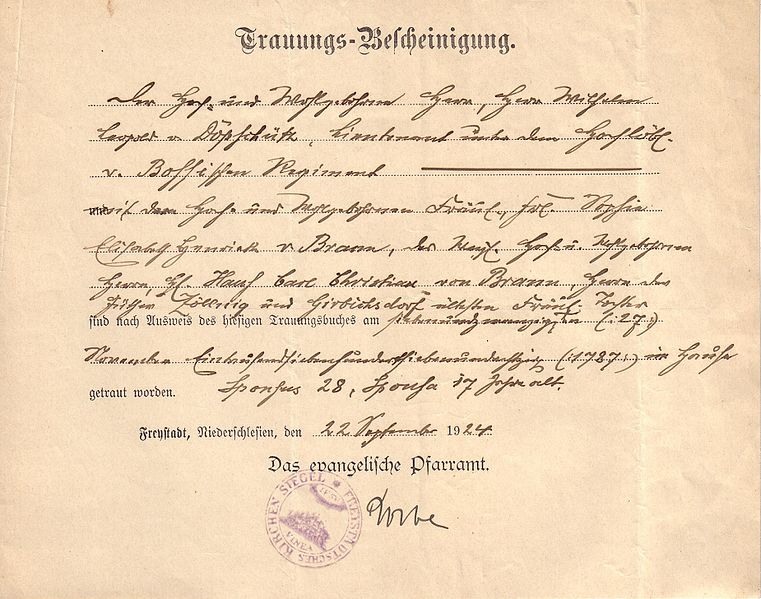 Trauungs-Bescheinigung.
Der Hoch- und Wohlgebohrne Herr, Herr Wilhelm
Leopold v Döpschütz, Lieutenant unter dem Hochlöbl.
v. Boßischen Regiment
mit dem Hoch- und Wohlgebohrnen Fräul., Frl. Sophie
Elisabeth Henriette v Braun, des Hoch- u. Wohlgebohrnen
Herrn H. Carl Christian von Braun, Herrn der
Zölling und ältesten Fräul. Tochter
sind nach Ausweis des hiesigen Trauungsbuches am siebenundzwanzigsten (:27:)
November Eintausendsiebenhundertsiebenundachtzig (:1787:) im Hause
getraut worden. Sponsus 28, Sponsa 17 Jahre alt.
Freystadt, Niederschlesien, den 22 September 1924.
Das evangelische Pfarramt.
FREYSTÄDTSCHES KIRCHEN SIEGEL
VINEA